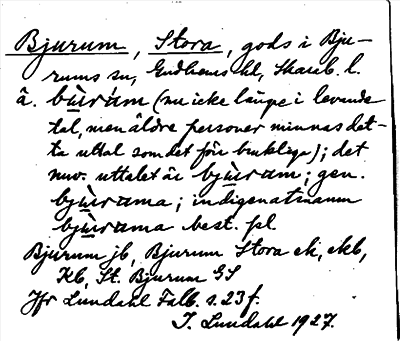 Bjurum, Stora, gods i Bju-
rums sn, Gudhems hd, Skarab. l.
ä. bùrám (nu icke längre i levande
tal, men äldre personer minnas det-
ta uttal som det förr brukliga); det
nuv. uttalet är bjùram; gen.
bjùrama; indigenatsnamn
bjùrama best. pl.
Bjurum jb, Bjurum Stora ek, ekb,
Kb, St. Bjurum GS
Jfr Lundahl Falb. s. 23 f.
I. Lundahl 1927.